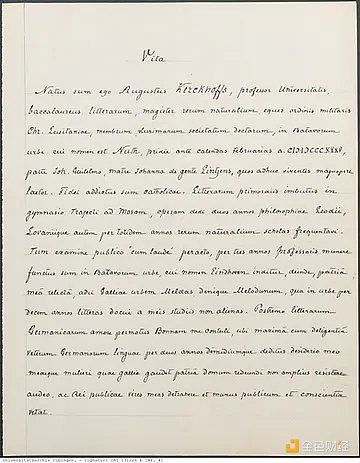 Vita
Natus sum ego Augustus Kerckhoffs, professor Universitatis,
baccalaureus litterarum, magister rerum naturalium, eques ordinis militaris
Chr. Lusitaniae, membrum plurimarum societatum doctarum, in Batavorum
urbe cui nomen est Nuth, pridie ante calendas Februarias a.
patre Joh. Guilelmo, matre Johanna de gente Lintjens, quos adhuc viventes magnopere
laetor. Fidei addictus sum catholicae. Litterarum primordiis imbutus in
gymnasio Trajecti ad Mosam, operam dedi duos annos philosophiae Leodii,
Lovaniique autem per totidem annos rerum naturalium scholas frequentavi.
Tum examine publico "cum laude" peracto, per tres annos professoris munere
functus sum in Batavorum urbe, cui nomen Eindhoven inditur, deinde, patria
mea relicta, adii Galliae urbem Meldas denique Melodunum, qua in urbe per
decem annos litteras docui a meis studiis non alienas. Postremo litterarum
Germanicarum amore permotus Bonnam me contuli, ubi maxima cum diligentia
veterum Germanorum linguae per duos annos dimidiumque deditus desiderio meo
meaeque mulieri quae gallia gaudet patria domum redeundi non amplius resistere
audeo, ac Rei publicae vires meas detrahere et munus publicum et conscientia
vetat.
Universitätsbibliothek Tübingen,
金色财经